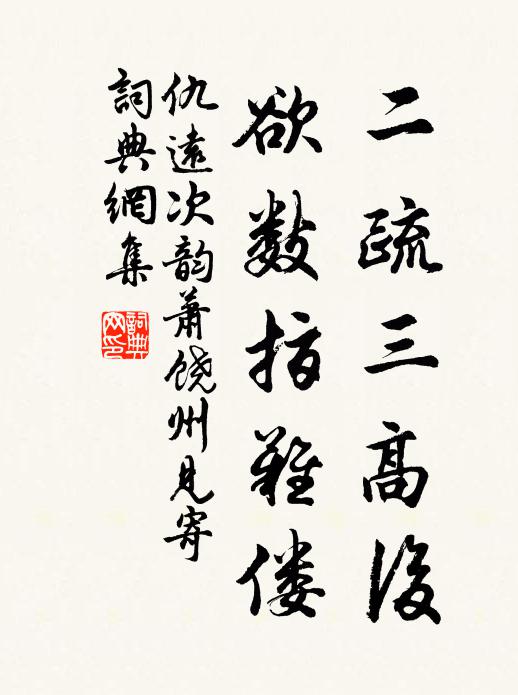 二疏三高後
欲数指難僂
仇遠次韵蕭饒州見寄
詞典網集
詞典網印